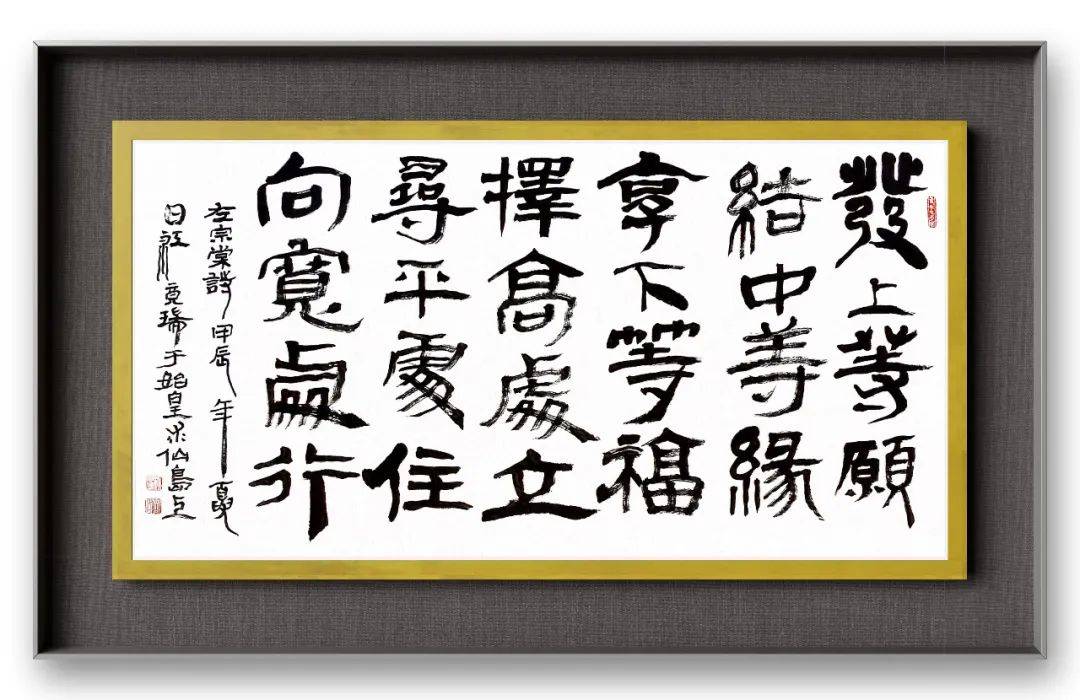 發上等願
結中等緣
享下等福
擇高處立
尋平處住
向寬處行
左宗棠詩 甲辰年夏
日 竟瑞于始皇求仙島上